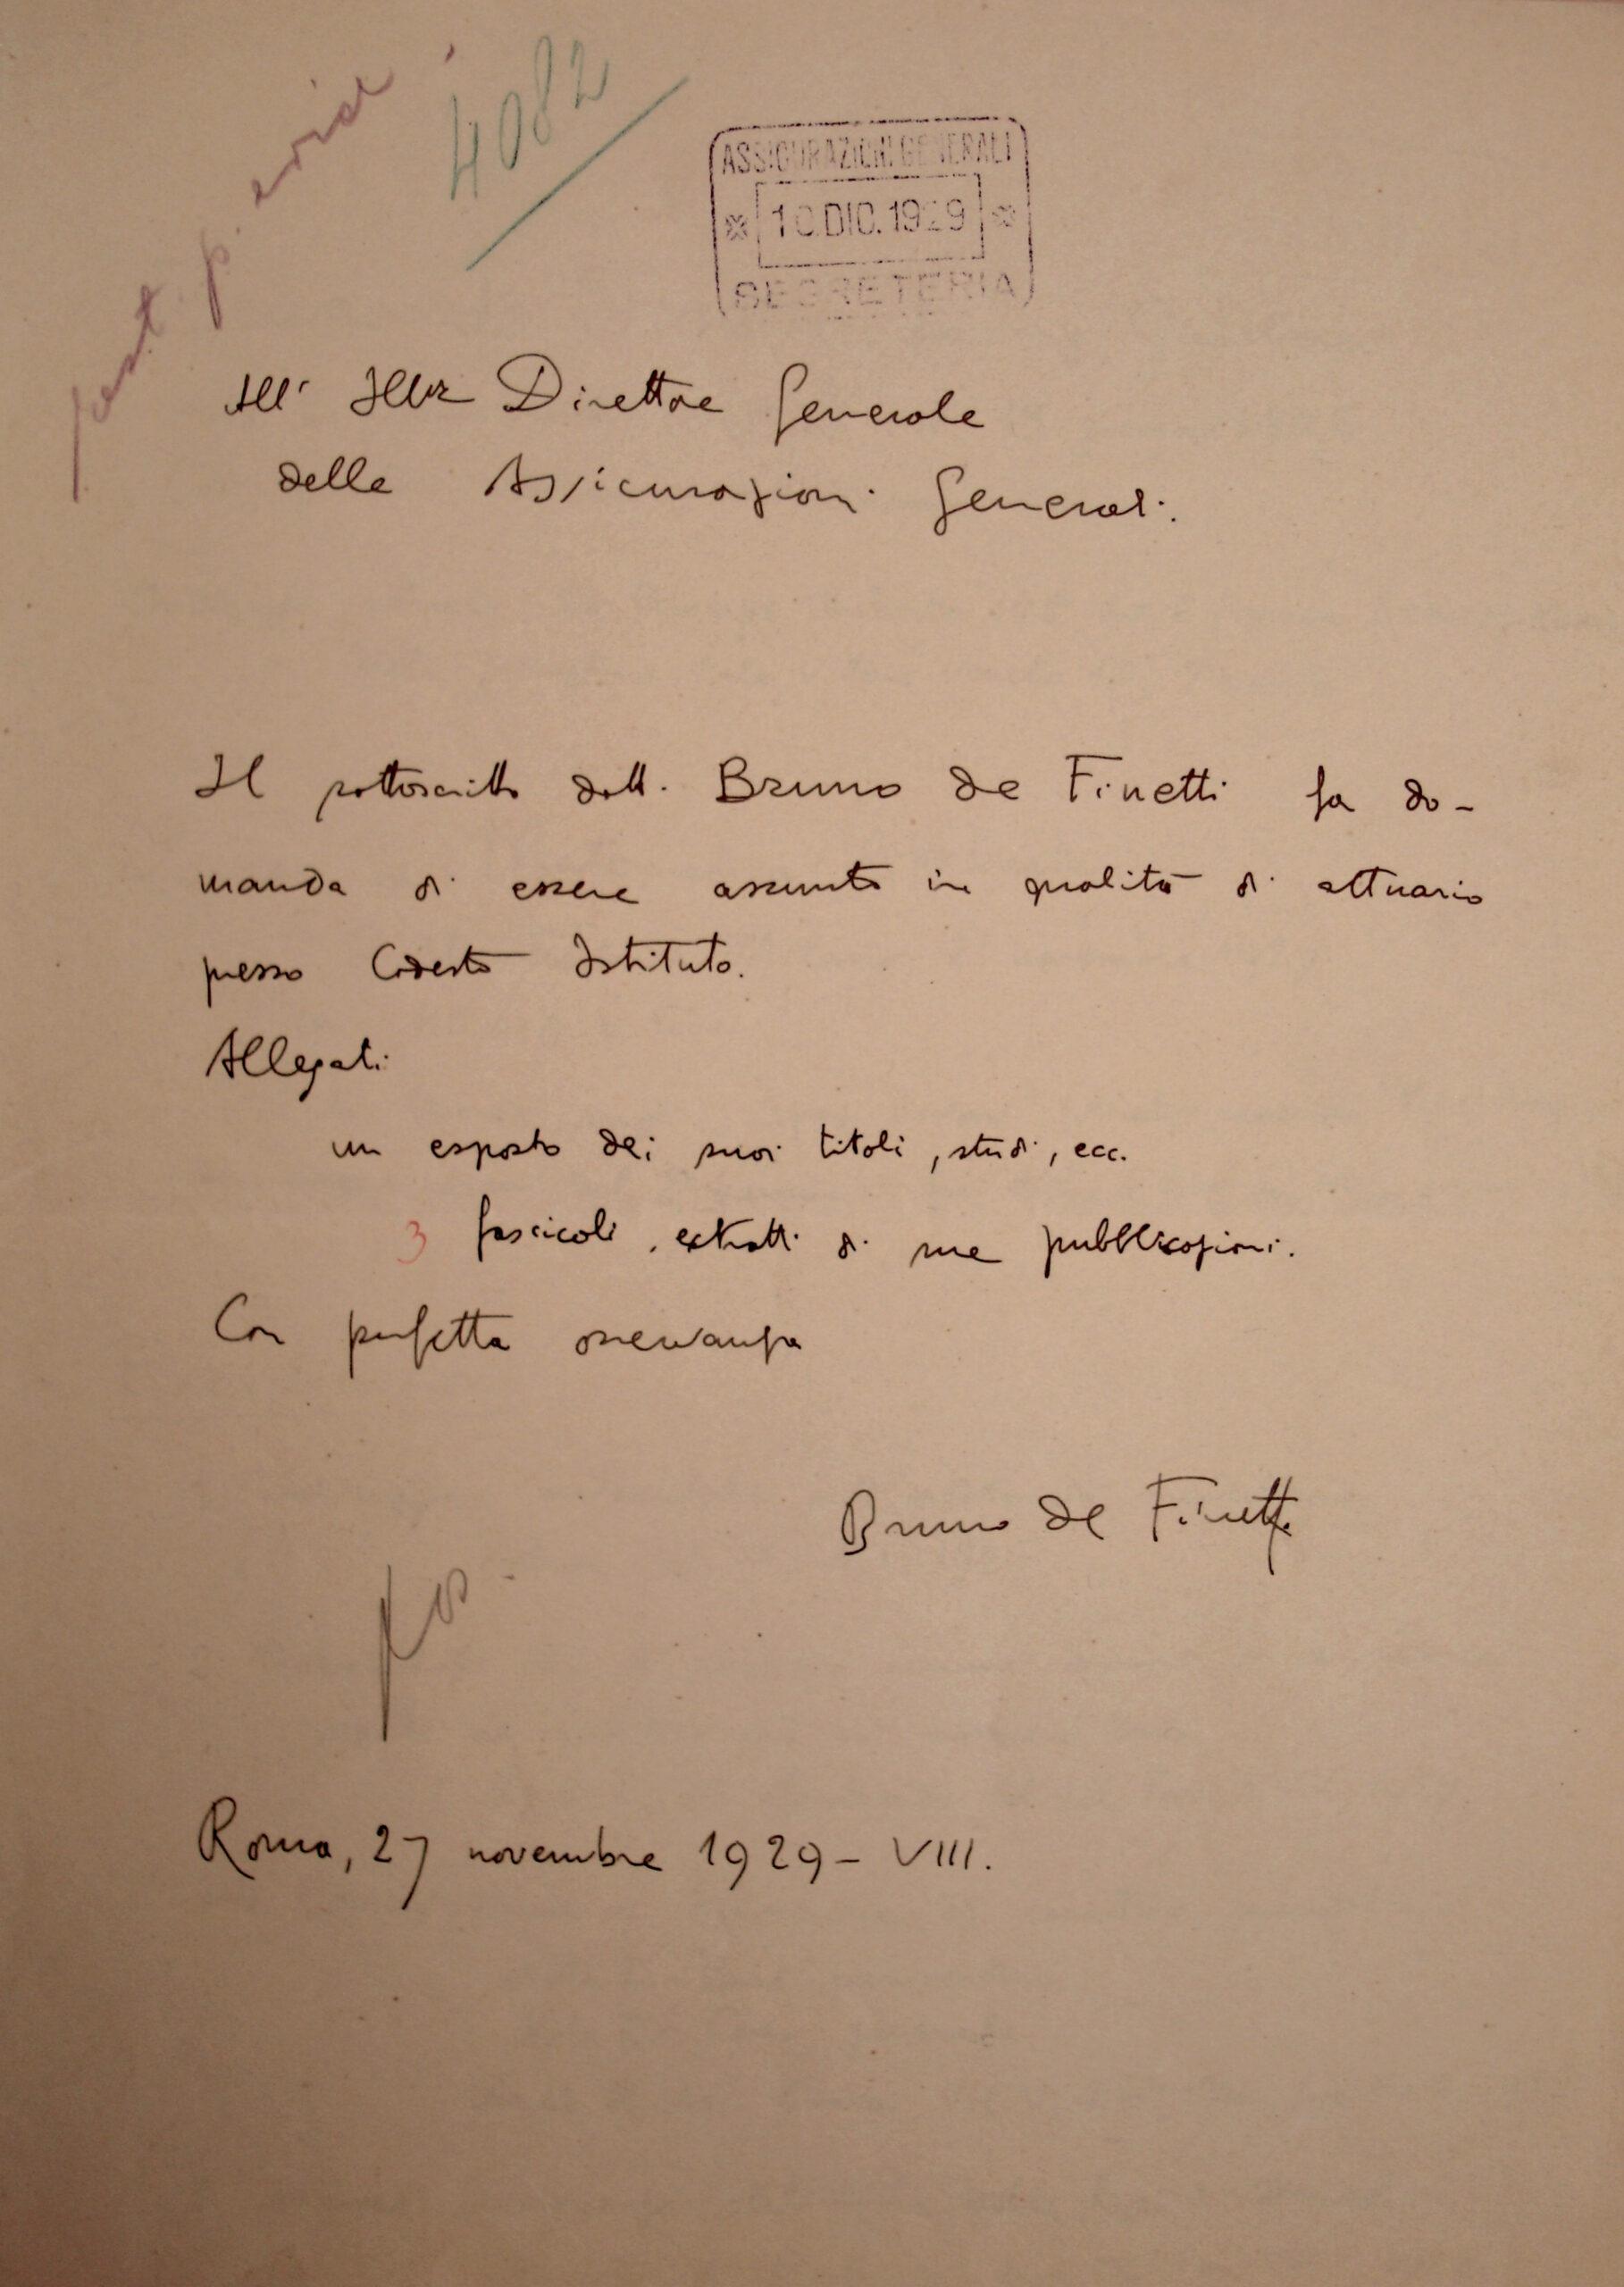 4082
ASSICURAZIONI GENERALI
10.DIC.1929
SEGRETERIA
All' Illmo Direttore Generale
delle Assicurazioni Generali.
Il sottoscritto dott. Bruno de Finetti fa do-
manda di essere assunto in qualità di attuario
presso Codesto Istituto.
Allegati
un esposto dei suoi titoli, studi, ecc.
3 fascicoli, estratti di sue pubblicazioni.
Con perfetta osservanza
Bruno de Finetti
Roma, 27 novembre 1929 - VIII.